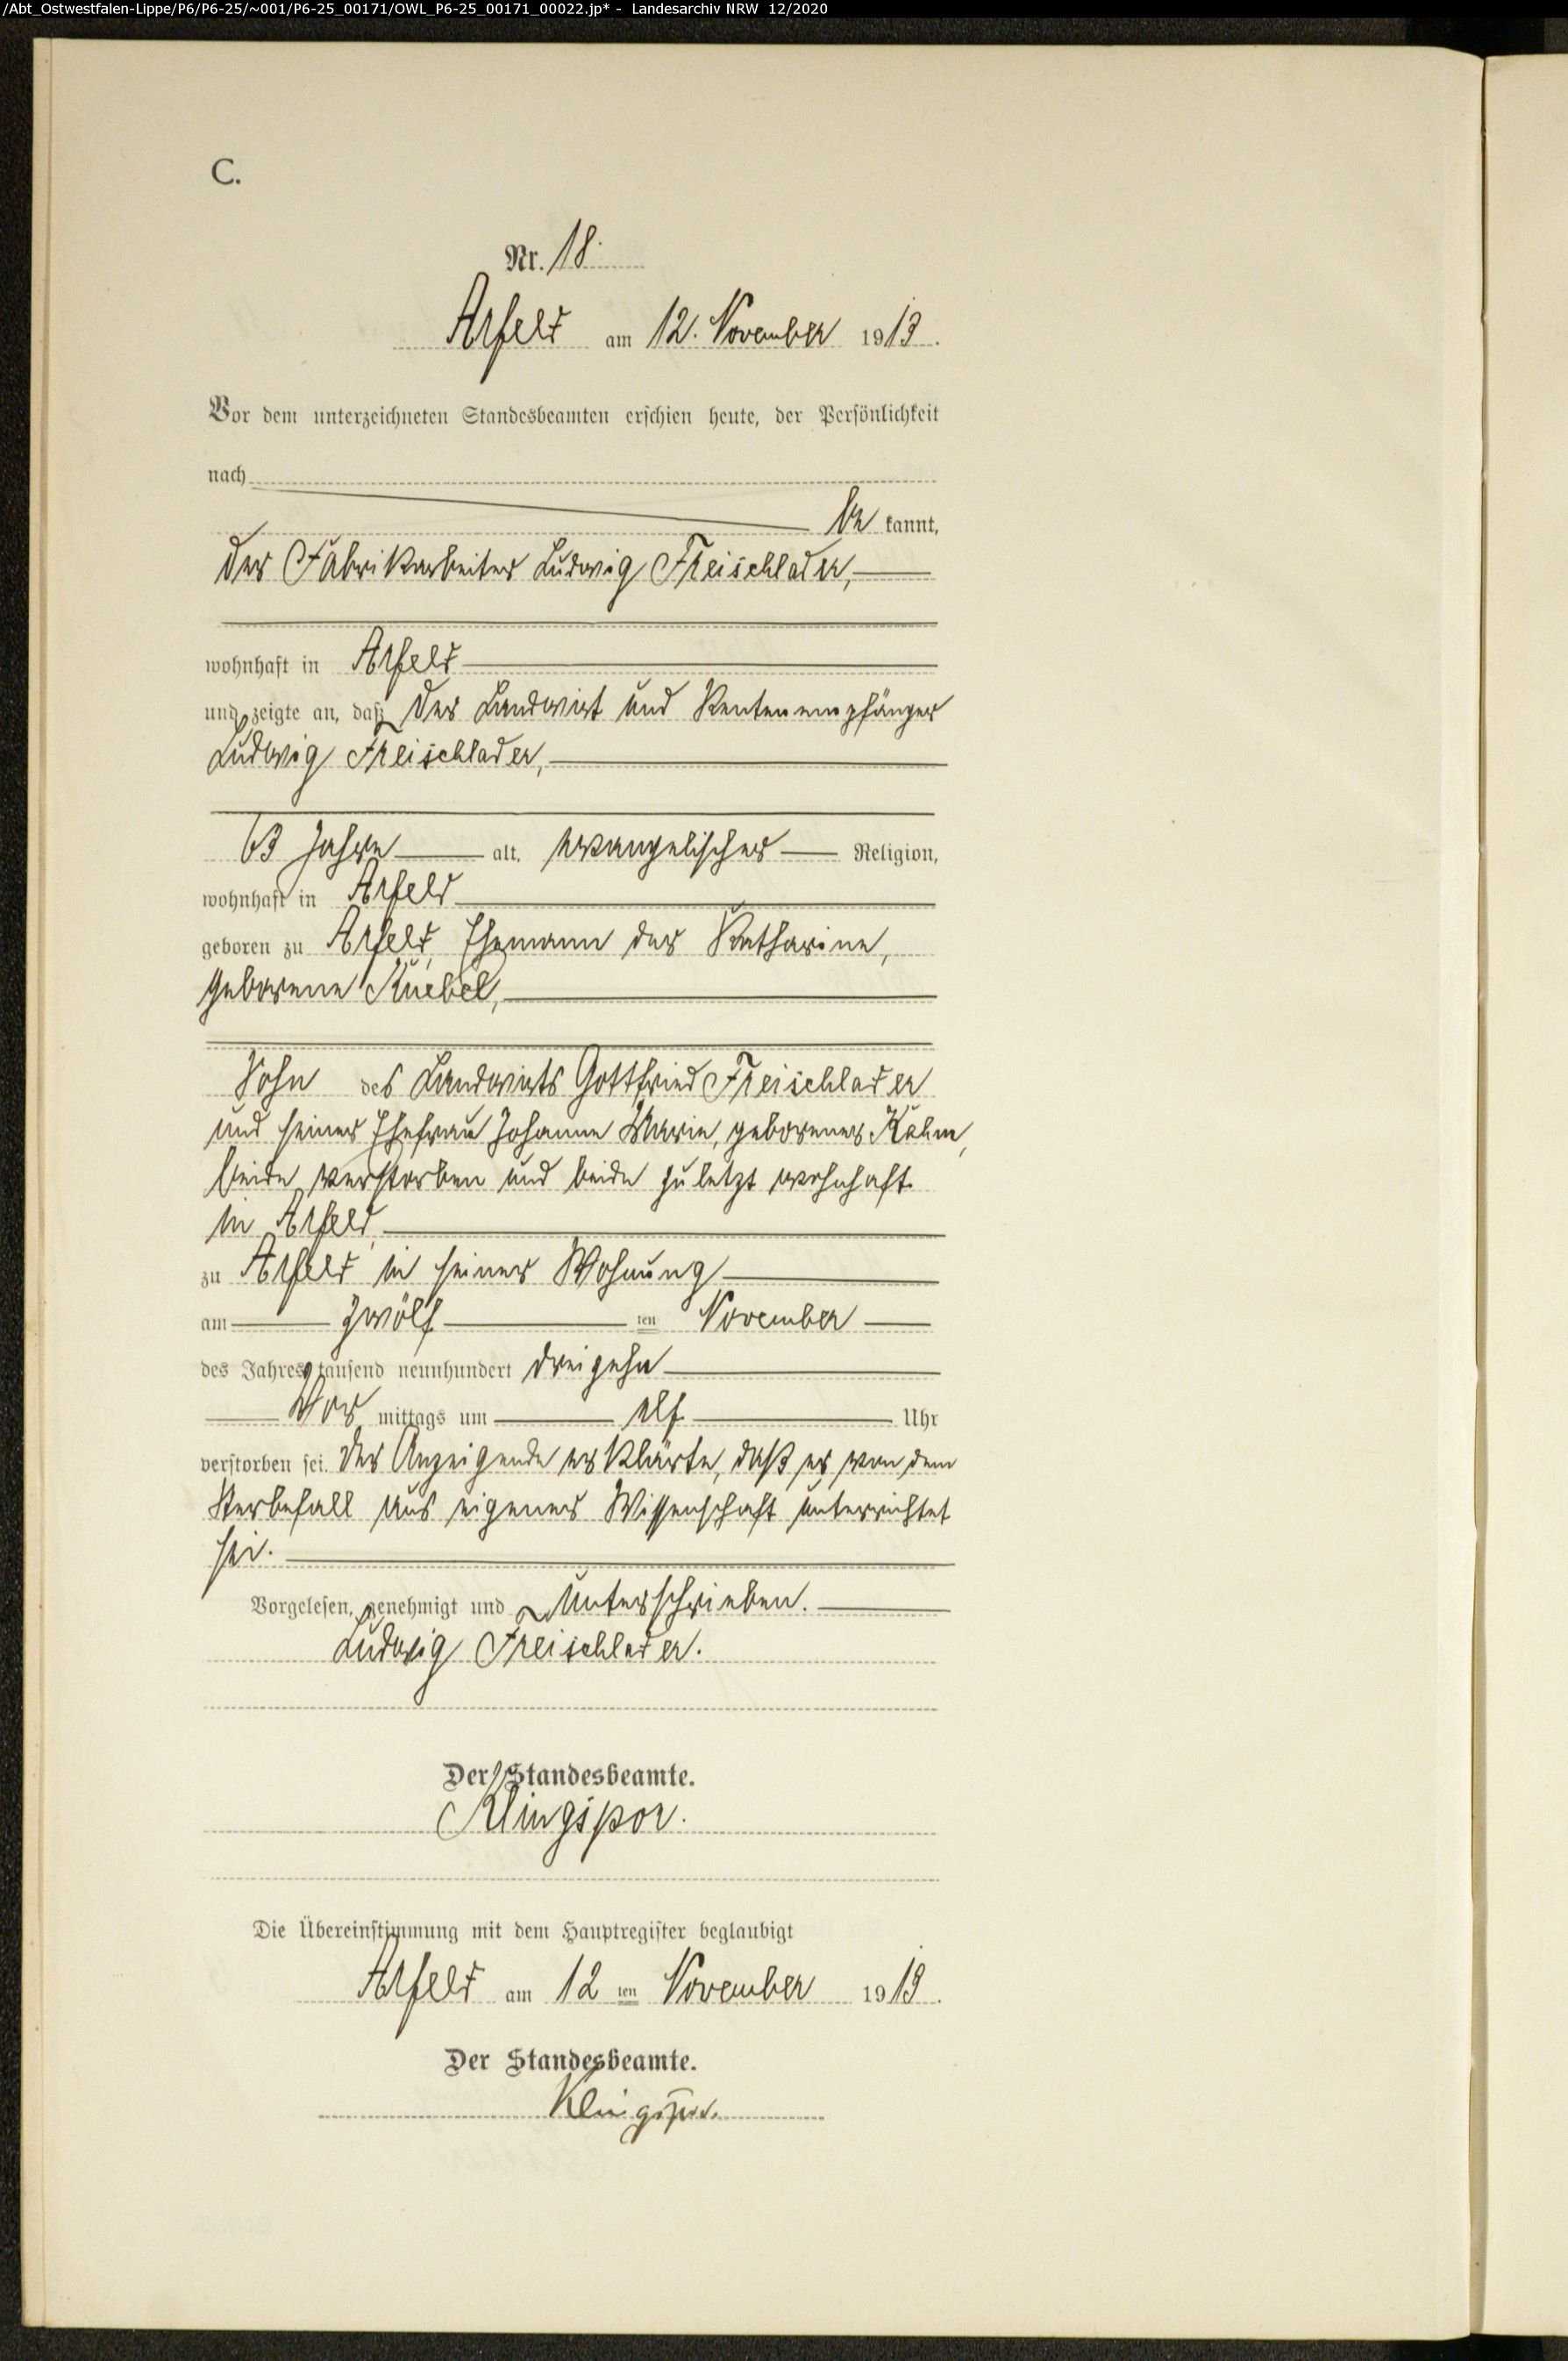 /Abt_Ostwestfalen-Lippe/P6/P6-25/~001/P6-25_00171/OWL_P6-25_00171_00022.jp* - Landesarchiv NRW 12/2020
C.
Nr. 18
Arfeld am 12. November 1913.
Vor dem unterzeichneten Standesbeamten erschien heute, der Persönlichkeit
nach
be kannt,
der Fabrikarbeiter Ludwig Freischlader,
wohnhaft in Arfeld
und zeigte an, daß der Landwirt und Rentenempfänger
Ludwig Freischlader,
63 Jahre alt, evangelischer Religion,
wohnhaft in Arfeld
geboren zu Arfeld, Ehemann der Katharine,
geborene Kuebel,
Sohn des Landwirts Gottfried Freischlader
und seiner Ehefrau Johanne Marie, geborener
beide verstorben und beide zuletzt wohnhaft
in Arfeld,
zu Arfeld in seiner Wohnung
am zwölf ten November
des Jahres tausend neunhundert dreizehn
Vor mittags um elf Uhr
verstorben sei. Der Anzeigende erklärte, daß er von dem
Sterbefall aus eigener Wissenschaft unterrichtet
sei.
Vorgelesen, genehmigt und unterschrieben.
Ludwig Freischlader.
Der Standesbeamte.
Klingspor.
Die Übereinstimmung mit dem Hauptregister beglaubigt
Arfeld am 12 ten November 1913.
Der Standesbeamte.
Klingspor.